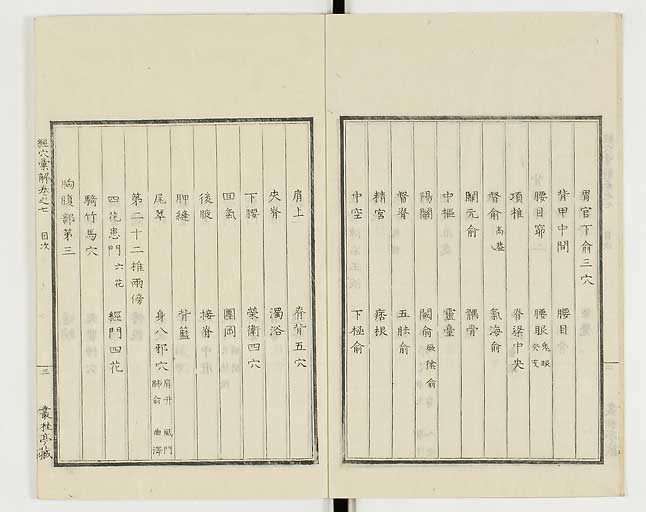 胃官下俞三穴
背甲中間　腰目
腰目窌　腰眼 鬼眼 癸亥
項椎　脊梁中央
督俞 高蓋　氣海俞
關元俞　髃骨
中樞　靈臺
陽關　闕俞 厥陰俞
督脊　五胠俞
精宮　痞根
中空　下極俞
肩上　脊背五穴
夾脊　濁浴
下腰　榮衛四穴
回氣　團岡
後腋　接脊
胛縫　背籃
尾翠　身八邪穴 肩井 風門 肺俞 曲澤
第二十二椎兩傍
四花患門 六花　經門四花
騎竹馬穴
胸腹部第三
經穴彙解卷之七　目次　三　叢桂亭藏